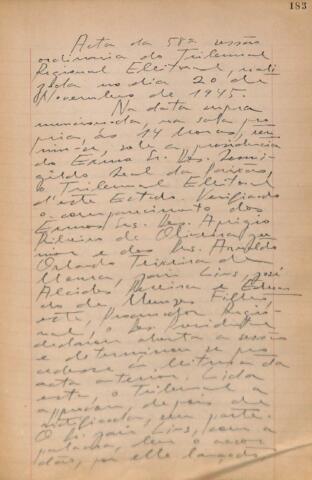 183
Acta da 58ª sessão
ordinaria do Tribunal
Regional Eleitoral, reali
zada no dia 20 de
Novembro de 1945.
Na data supra
mencionada, na sala pro
pria, ás 14 horas, reu
niu-se, sob a presidencia
do Exmo Sr. Des.
gildo Leal da Paixão,
o Tribunal Eleitoral
d'este Estado. Verificado
o comparecimento dos
Exmos Srs. Des. Aprigio
Ribeiro de Oliveira
e dos Drs. Arnaldo
Orlando Teixeira de
Moura, José
Alcides Pereira e Edmun
do de Menezes Filho,
este, Procurador Regio
nal, o Sr. Presidente
declarou aberta a sessão
e determinou se pro
cedesse á leitura da
acta anterior. Lida
esta, o Tribunal a
approvou, depois de
rectificada, em parte.
O Sr. Lins, com a
palavra, leu o accor
dão, por elle lançado,